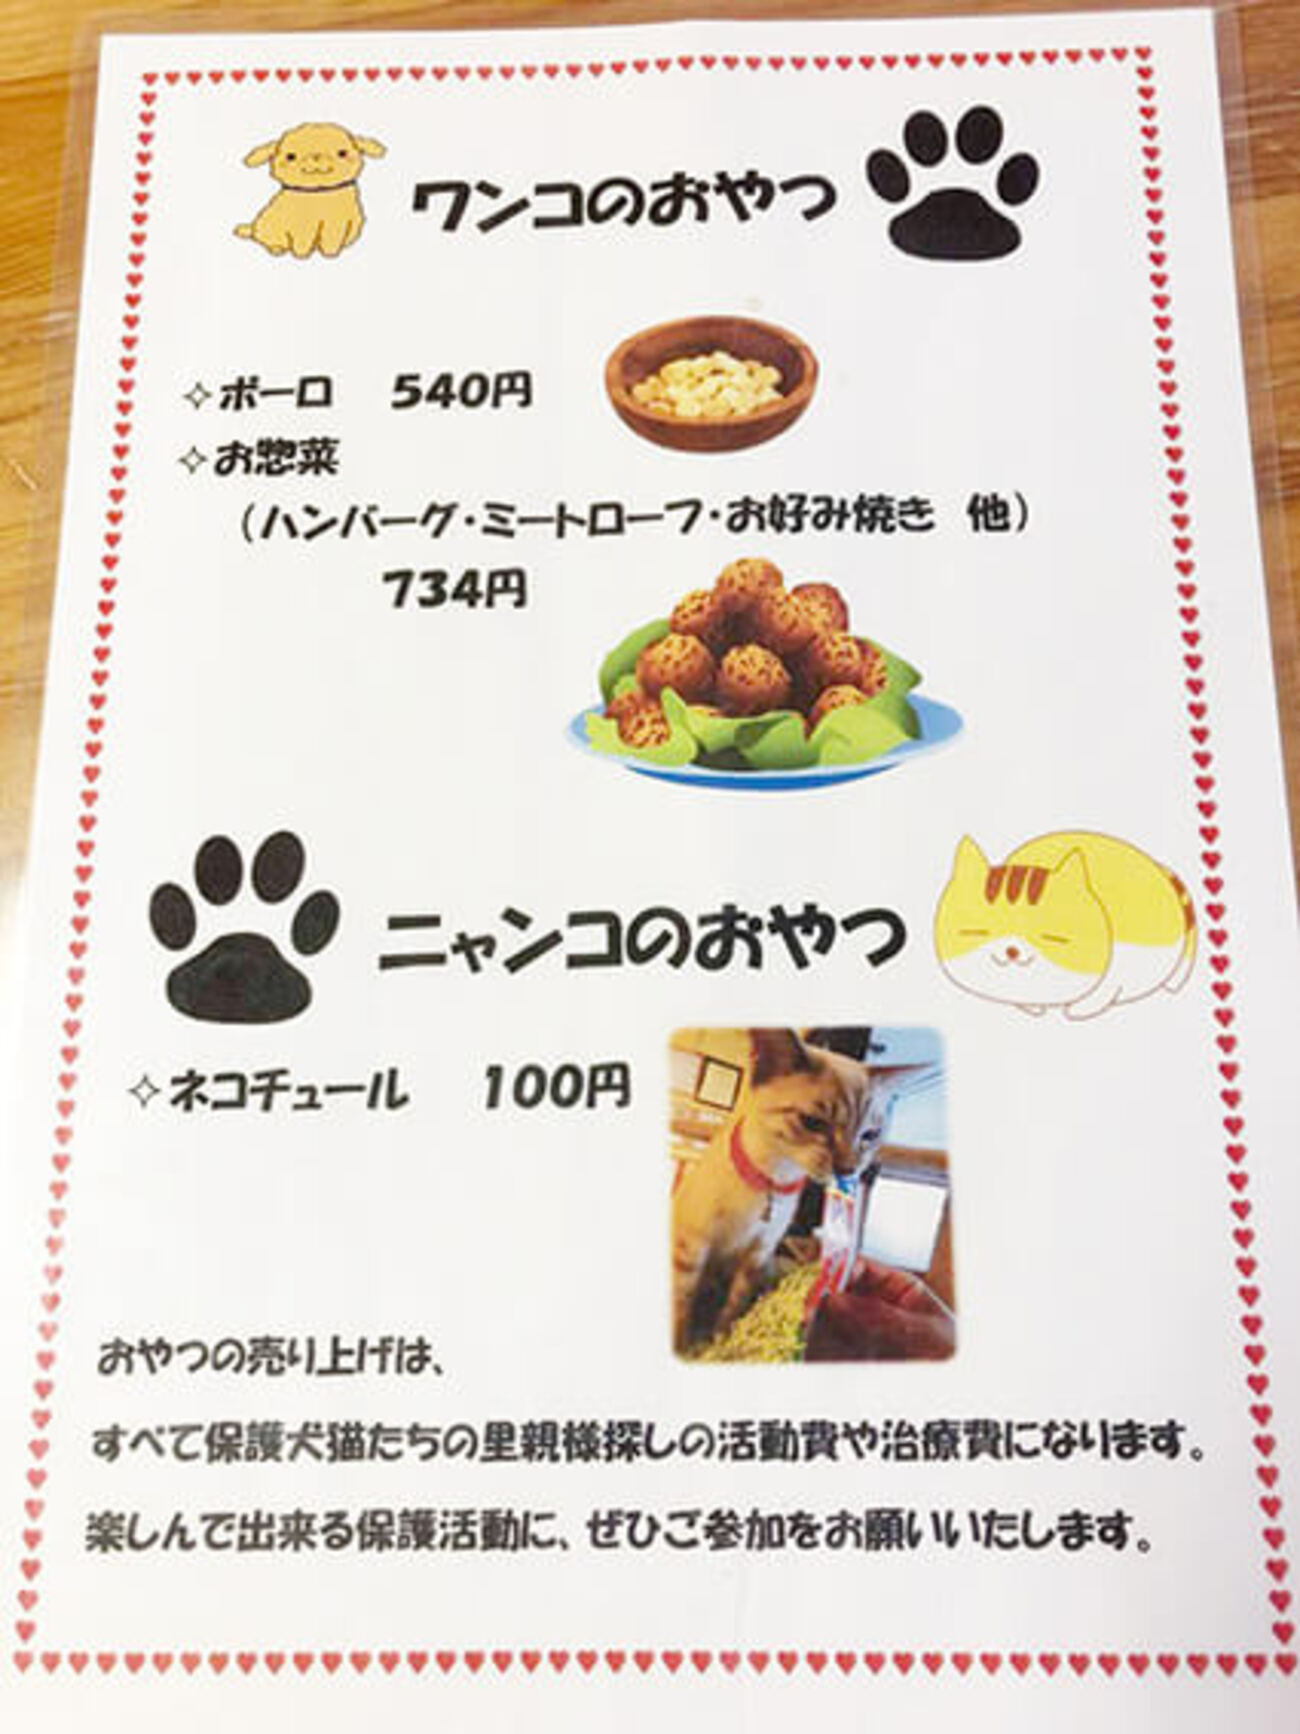 ワンコのおやつ
✧ボーロ 540円
✧お惣菜
(ハンバーグ・ミートローフ・お好み焼き 他)
734円
ニャンコのおやつ
✧ネコチュール 100円
おやつの売り上げは、
すべて保護犬猫たちの里親様探しの活動費や治療費になります。
楽しんで出来る保護活動に、ぜひご参加をお願いいたします。